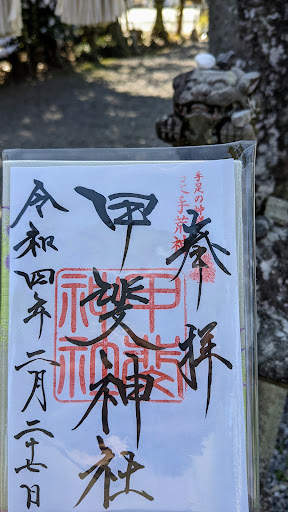 手足の神
足手荒神
奉拝
甲斐神社
甲斐
神社
令和四年二月二十七日